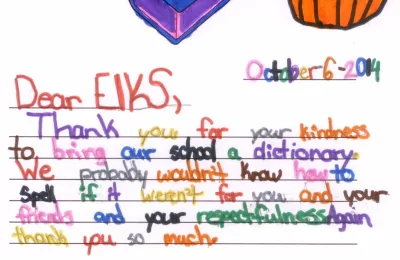 October 6-2014
Dear ElKS,
Thank you for your kindness
to bring our school a dictionary.
We probably wouldn't know how to
spell if it weren't for you and your
friends and your respectfulness Again
thank you so much.